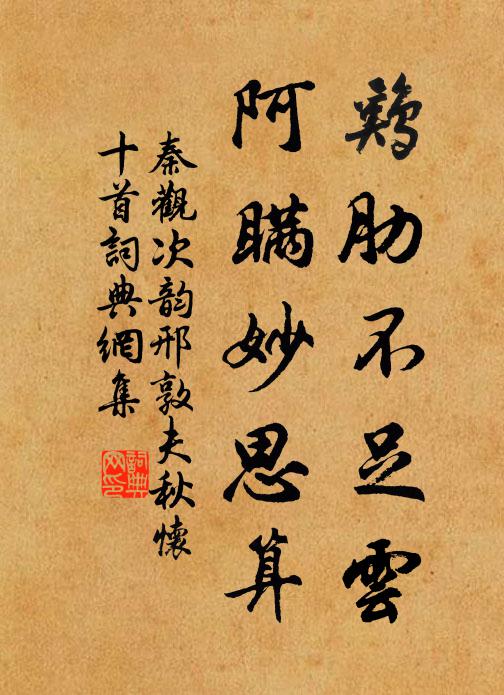 鷄肋不足雲
阿瞞妙思算
秦觀次韵邢敦夫秋懷
十首詞典網集
詞典
网印